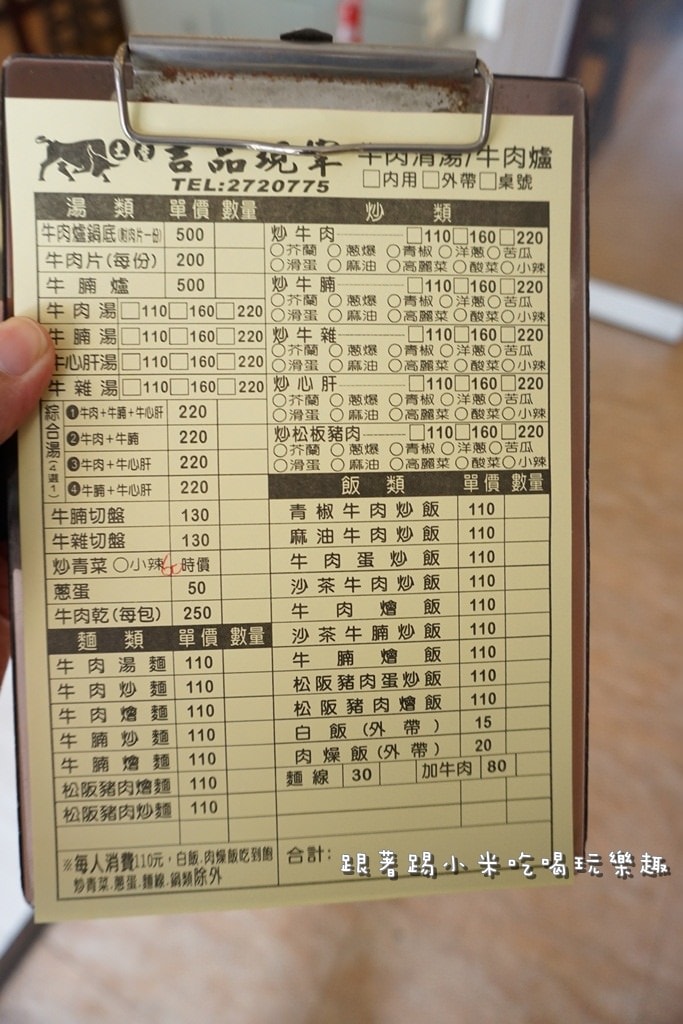 吉品現宰 牛肉清湯/牛肉爐
TEL:2720775 □內用□外帶□桌號
湯類 單價 數量
牛肉爐鍋底(附肉片一份) 500
牛肉片(每份) 200
牛腩爐 500
牛肉湯 □110□160□220
牛腩湯 □110□160□220
牛心肝湯 □110□160□220
牛雜湯 □110□160□220
綜合湯(4選1)
❶牛肉+牛腩+牛心肝 220
❷牛肉+牛腩 220
❸牛肉+牛心肝 220
❹牛腩+牛心肝 220
牛腩切盤 130
牛雜切盤 130
炒青菜 ○小辣 時價
蔥蛋 50
牛肉乾(每包) 250
麵類 單價 數量
牛肉湯麵 110
牛肉炒麵 110
牛肉燴麵 110
牛腩炒麵 110
牛腩燴麵 110
松阪豬肉燴麵 110
松阪豬肉炒麵 110
※每人消費110元,白飯.肉燥飯吃到飽
炒青菜.蔥蛋.麵線.鍋類除外
炒類
炒牛肉 □110□160□220
○芥蘭 ○蔥爆 ○青椒 ○洋蔥○苦瓜
○滑蛋 ○麻油 ○高麗菜 ○酸菜○小辣
炒牛腩 □110□160□220
○芥蘭 ○蔥爆 ○青椒 ○洋蔥○苦瓜
○滑蛋 ○麻油 ○高麗菜 ○酸菜○小辣
炒牛雜 □110□160□220
○芥蘭 ○蔥爆 ○青椒 ○洋蔥○苦瓜
○滑蛋 ○麻油 ○高麗菜 ○酸菜○小辣
炒心肝 □110□160□220
○芥蘭 ○蔥爆 ○青椒 ○洋蔥○苦瓜
○滑蛋 ○麻油 ○高麗菜 ○酸菜○小辣
炒松板豬肉 □110□160□220
○芥蘭 ○蔥爆 ○青椒 ○洋蔥○苦瓜
○滑蛋 ○麻油 ○高麗菜 ○酸菜○小辣
飯類 單價 數量
青椒牛肉炒飯 110
麻油牛肉炒飯 110
牛肉蛋炒飯 110
沙茶牛肉炒飯 110
牛肉燴飯 110
沙茶牛腩炒飯 110
牛腩燴飯 110
松阪豬肉蛋炒飯 110
松阪豬肉燴飯 110
白飯(外帶) 15
肉燥飯(外帶) 20
麵線 30 加牛肉 80
合計:
跟著踢小米吃喝玩樂趣